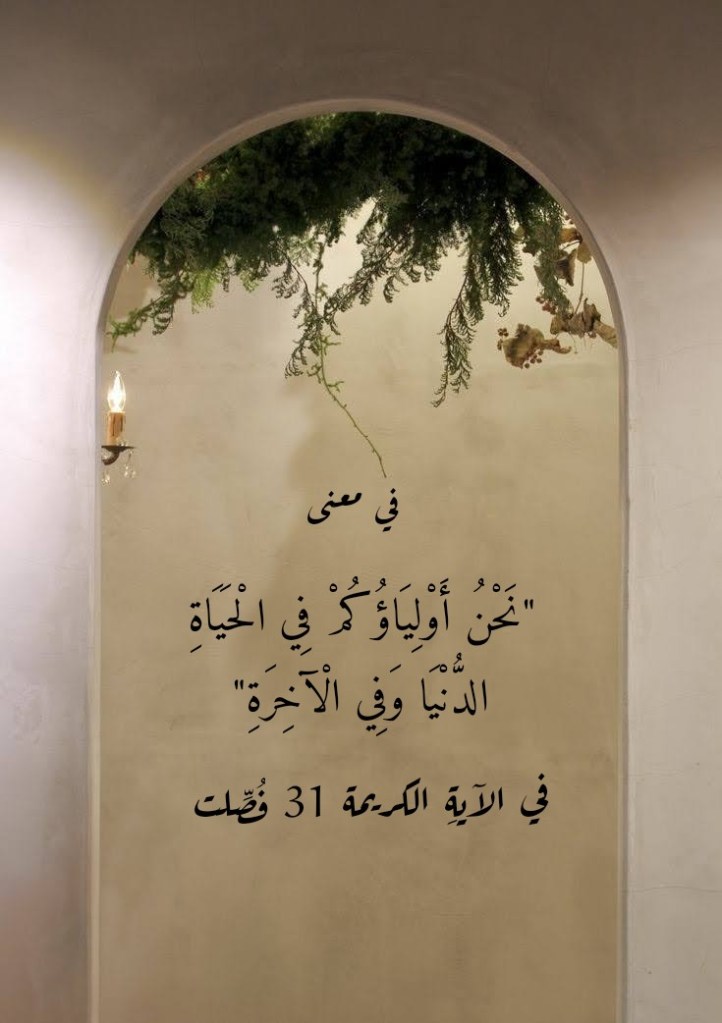 في معنى
"نَحْنُ أَوْلِيَاؤُكُمْ فِي الْحَيَاةِ
الدُّنْيَا وَفِي الْآخِرَةِ"
في الآيةِ الكريمة 31 فُصِّلت